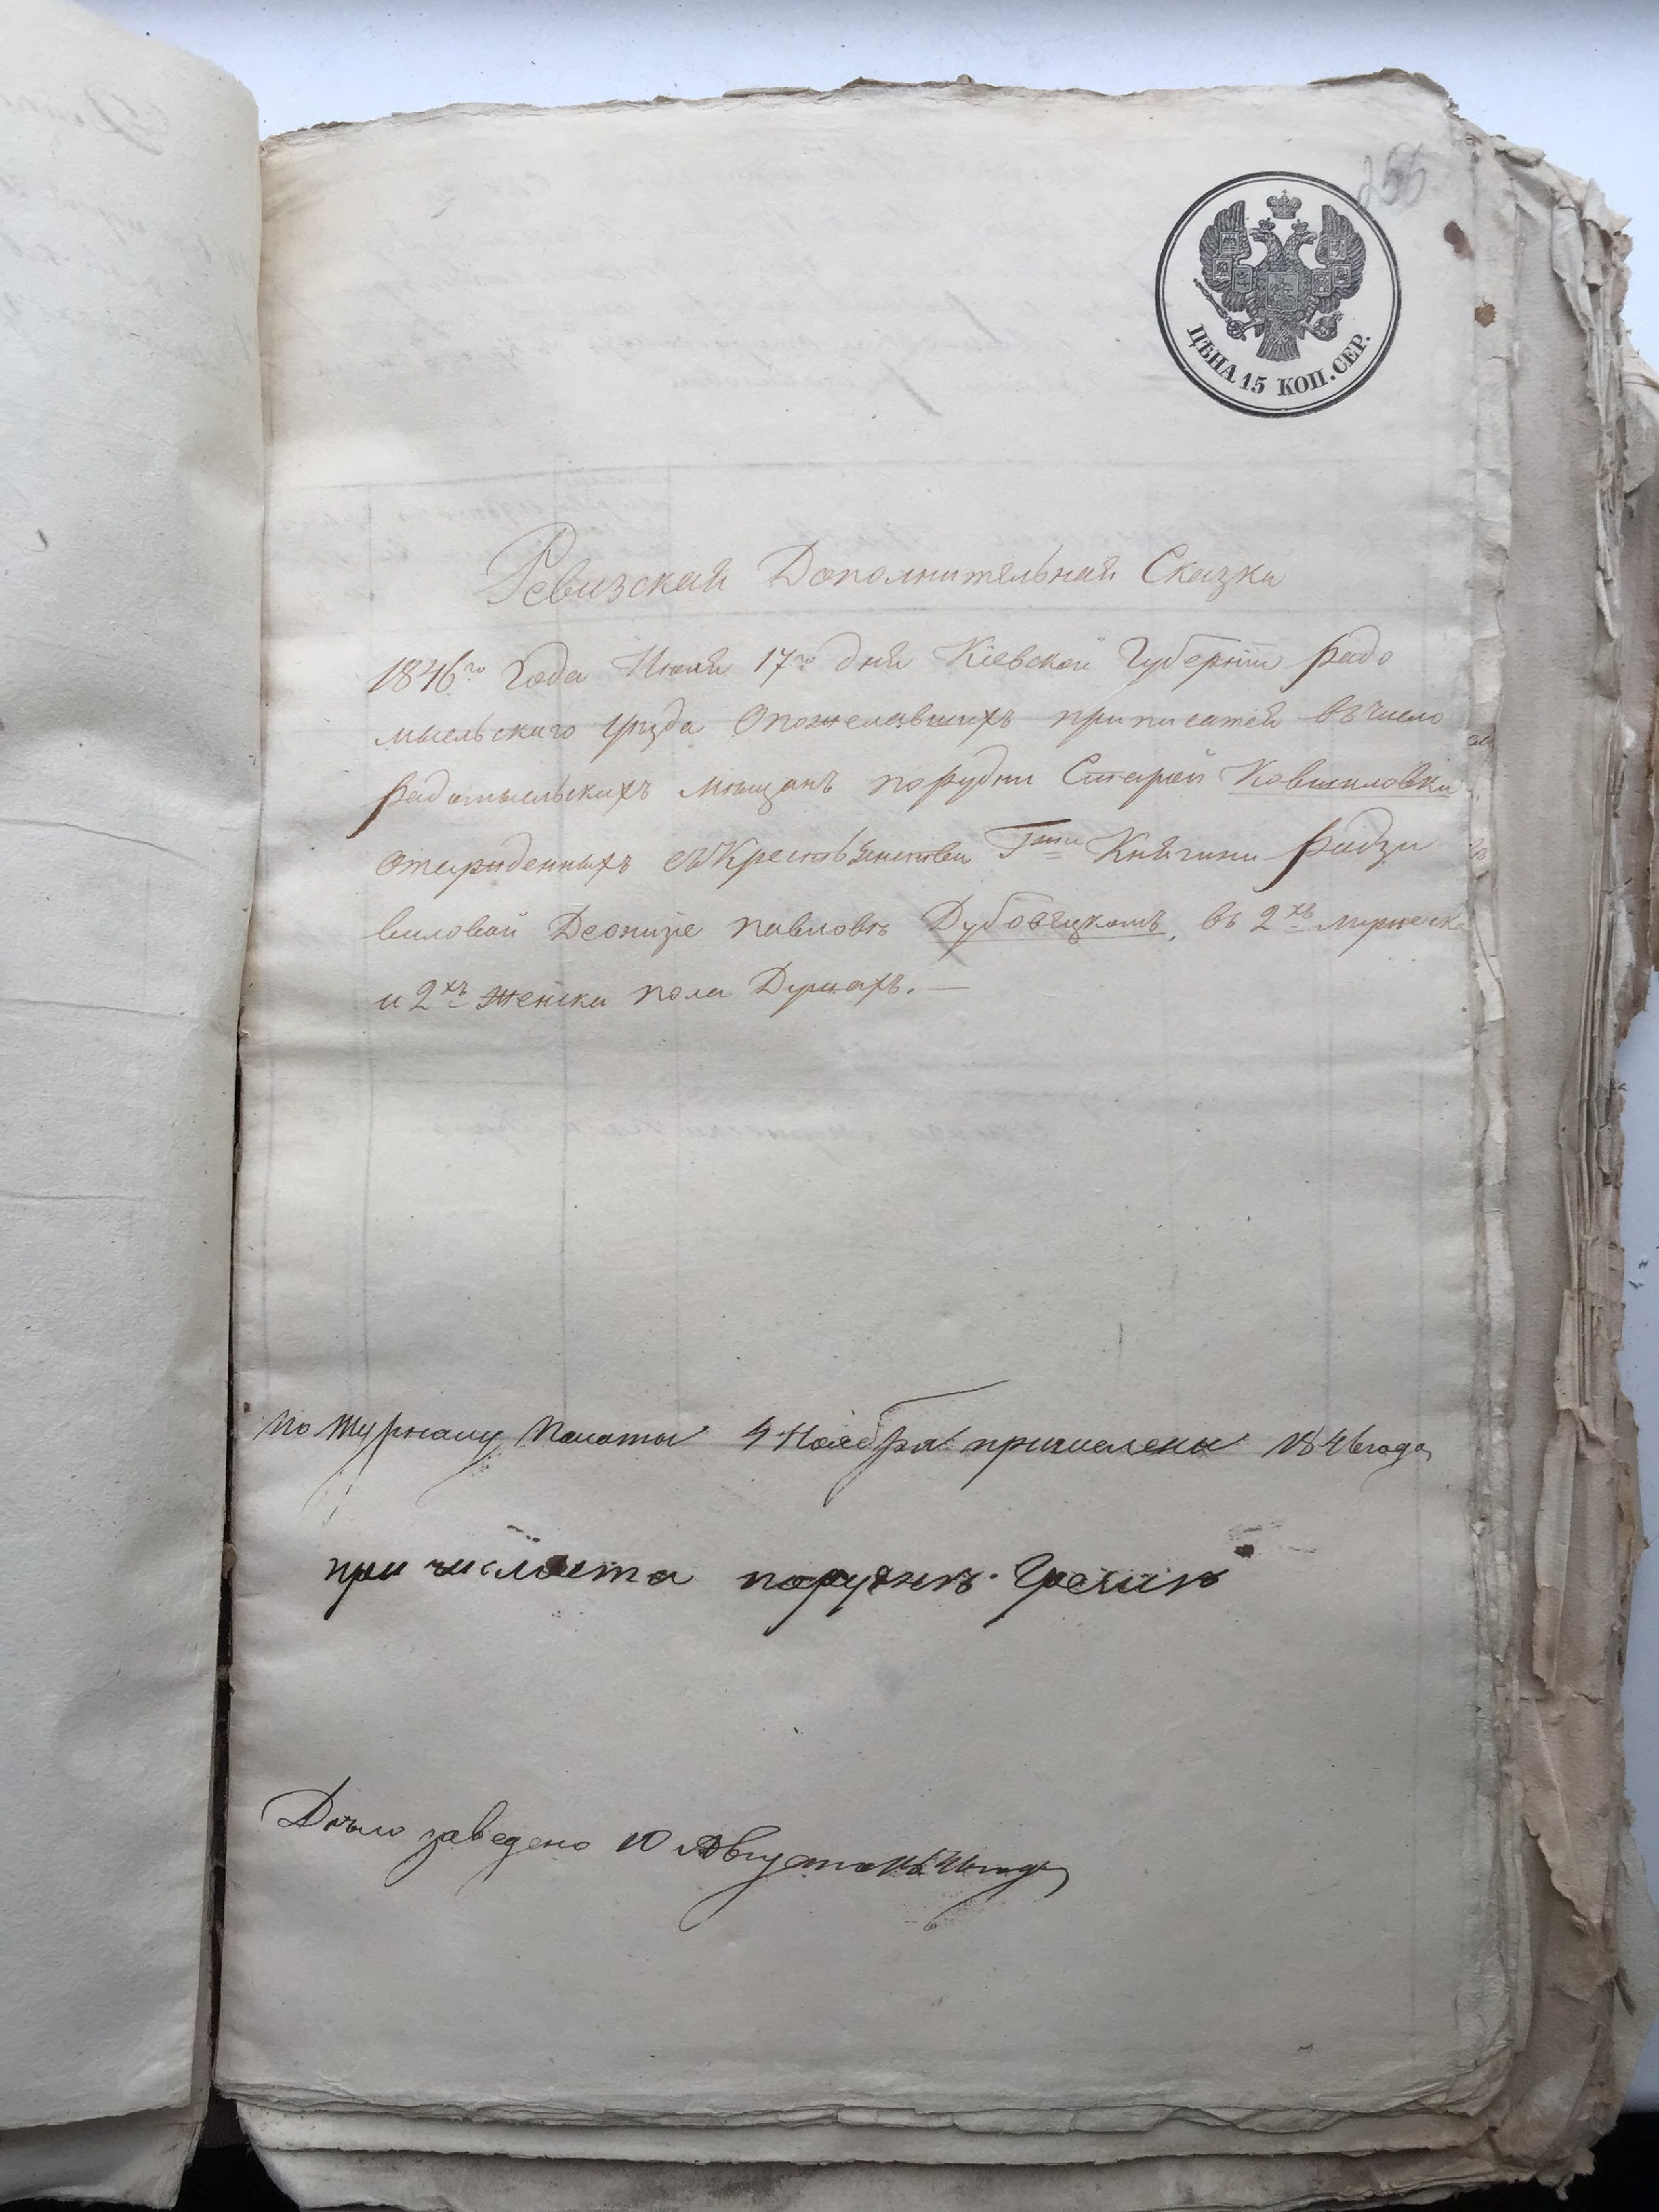 255
ЦѢНА 15 КОП. СЕР.
Ревизская Дополнительная Сказка
1846го Года Июля 17го дня Кіевской Губерніи Радо
мысльскаго уѣзда Опожелавшихъ приписатся въ число
Радомысльскихъ мѣщанъ порудни Старой
съ Крестьянства Княгини Радзи
виловой Деонизіе Павловѣ Дубовецкомъ, въ 2хъ мужеска
и 2хъ Женска пола Душахъ. —
По Журналу Палаты 4 Ноября причислены 1846 года
причислять порудни
Дѣло заведено 10 Августа 1846 года